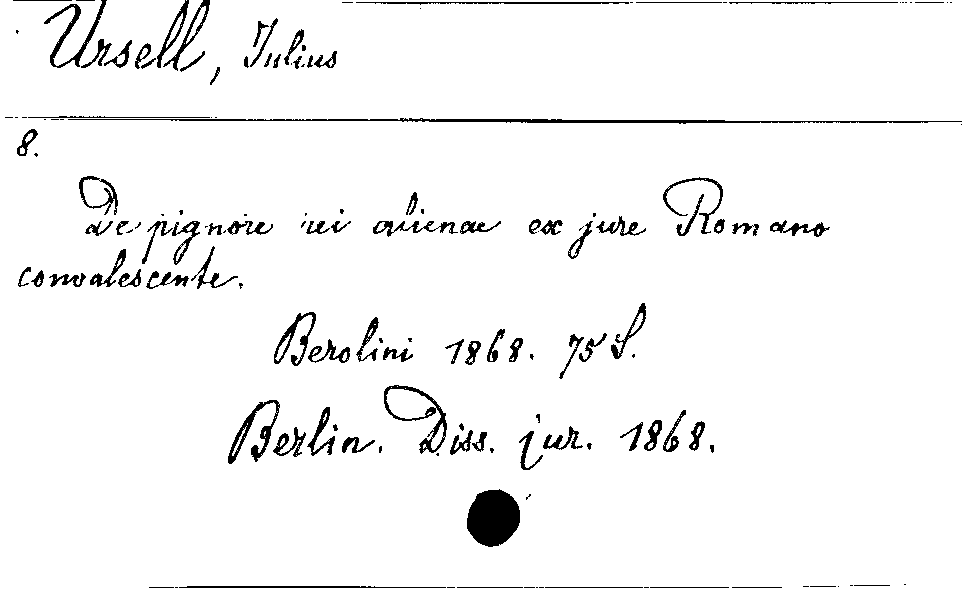 Ursell, Julius
8.
De pignore rei alienae ex jure Romano
convalescente.
Berolini 1868. 75 S.
Berlin. Diss. jur. 1868.